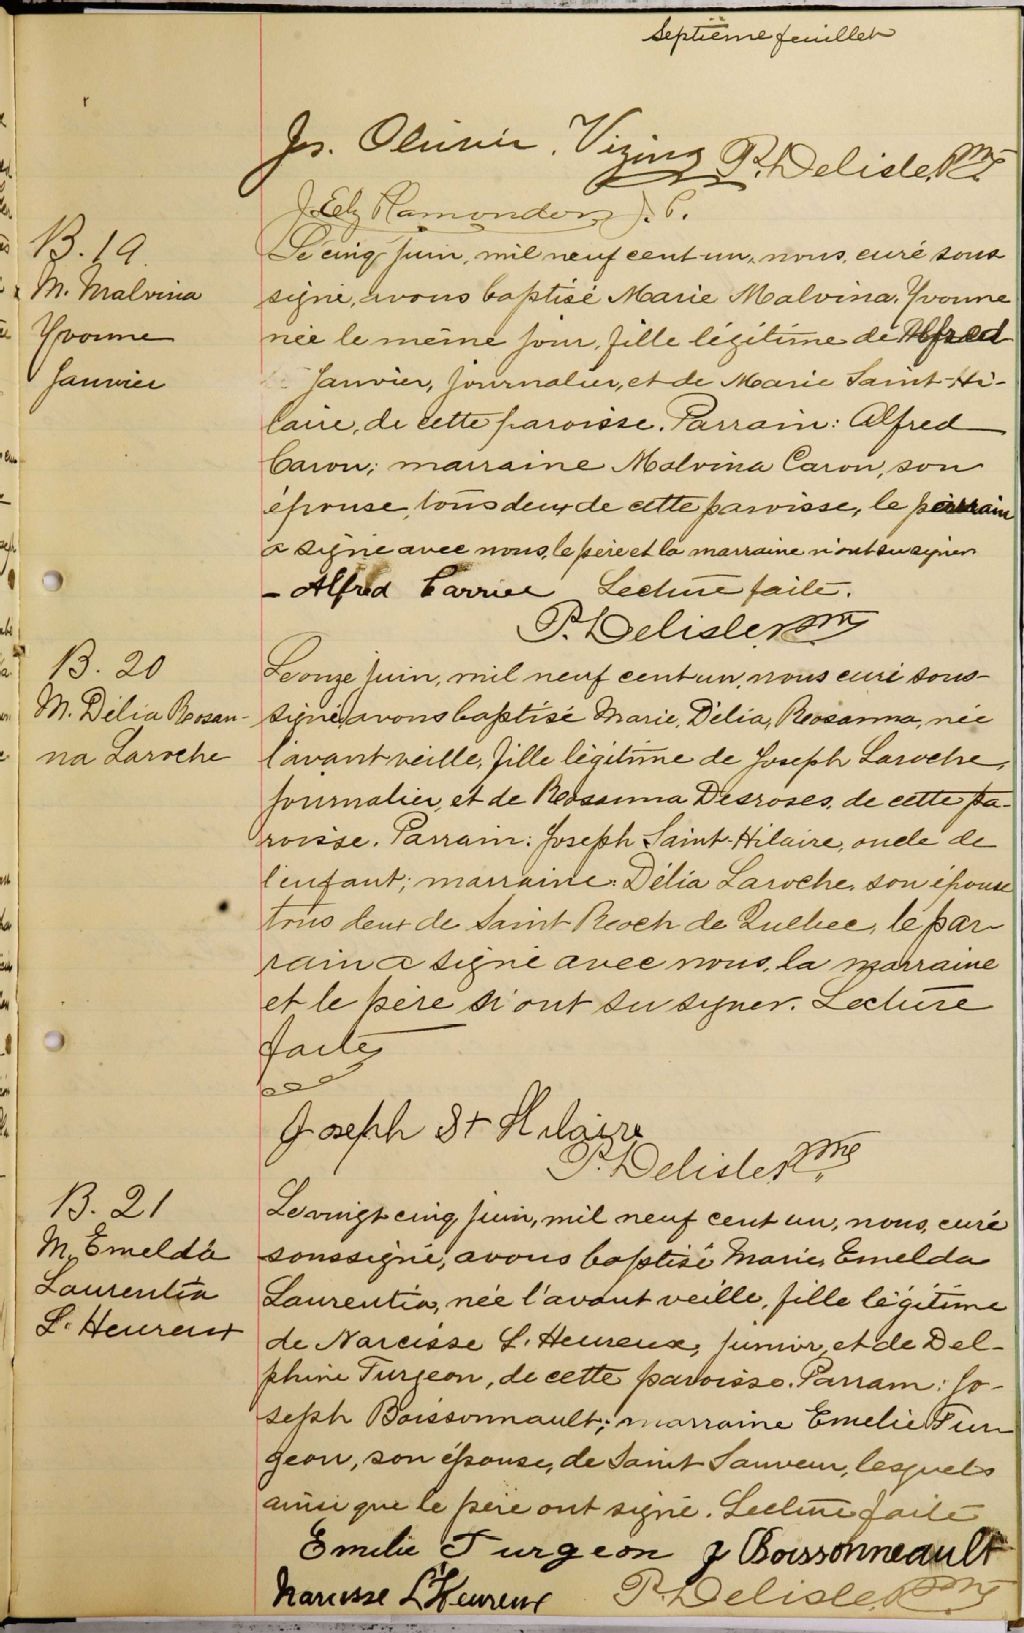 Septième feuillet
Jos. Olivier Vizina P. Delisle Ptre
J. Ely Plamondon J. P.
B. 19.
M. Malvina
Yvonne
Janvier
Le cinq juin, mil neuf cent un, nous, curé sous
signé, avons baptisé Marie Malvina, Yvonne
née le même jour, fille légitime de Alfred
Janvier, journalier, et de Marie Saint-Hi-
laire, de cette paroisse. Parrain: Alfred
Caron; marraine Malvina Caron, son
épouse, tous deux de cette paroisse, le parrain
a signé avec nous, le père et la marraine n'ont su signer
- Alfred Carrier Lecture faite.
P. Delisle, Ptre
B. 20
M. Délia Rosan-
na Laroche
Le onze juin, mil neuf cent un, nous curé sous-
signé, avons baptisé Marie, Délia, Rosanna, née
l'avant veille, fille légitime de Joseph Laroche,
journalier, et de Rosanna Desroses, de cette pa-
roisse. Parrain: Joseph Saint-Hilaire, oncle de
l'enfant; marraine: Délia Laroche, son épouse
tous deux de Saint Roch de Québec, le par-
rain a signé avec nous, la marraine
et le père n'ont su signer. Lecture
faite
Joseph St Hilaire
P. Delisle, Ptre
B. 21
M. Emelda
Laurentia
L'Heureux
Le vingt cinq juin, mil neuf cent un, nous, curé
soussigné, avons baptisé Marie, Emelda
Laurentia, née l'avant veille, fille légitime
de Narcisse L'Heureux, junior, et de Del-
phine Turgeon, de cette paroisse. Parrain: Jo-
seph Boissonnault; marraine Emelie Tur
geon, son épouse, de Saint Sauveur, lesquels
ainsi que le père ont signé. Lecture faite
Emelie Turgeon J Boissonneault
Narcisse L'Heureux P. Delisle, Ptre